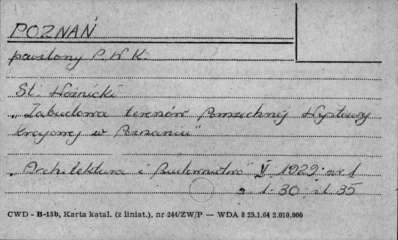 POZNAŃ
pawilony P.W.K.
St. Woźnicki
„Zabudowa terenów Powszechnej Wystawy
Krajowej w Poznaniu"
„Architektura i Budownictwo" V 1929 nr 1
s. 1-30 il. 35
CWD - B-15b, Karta katal. (z liniat.), nr 244/ZW/P — WDA 8 25.1.64 2.010.000